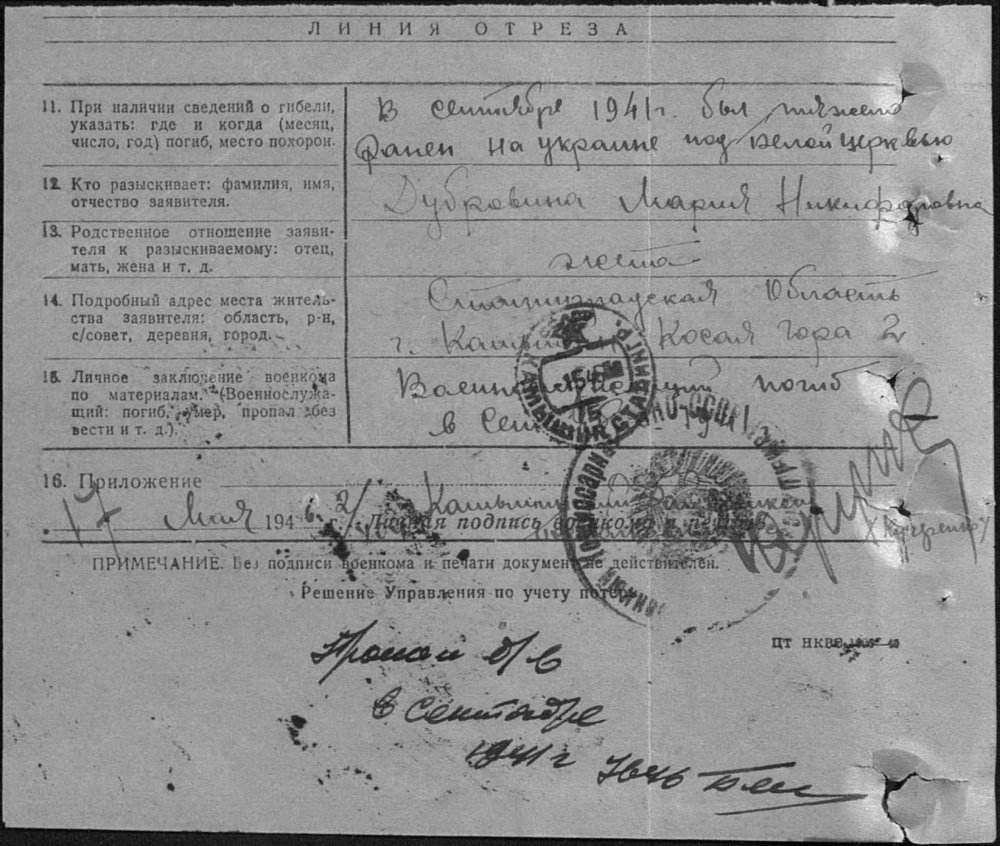 ЛИНИЯ ОТРЕЗА
11. При наличии сведений о гибели,
указать: где и когда (месяц,
число, год) погиб, место похорон.
В сентябре 1941г. был тяжело
ранен на украине под Белой церквью
12. Кто разыскивает: фамилия, имя,
отчество заявителя.
Дубровина Мария Никифоровна
13. Родственное отношение заяви-
теля к разыскиваемому: отец,
мать, жена и т. д.
жена
14. Подробный адрес места житель-
ства заявителя: область, р-н,
с/совет, деревня, город.
Сталинградская Область
г. Косая гора 2
15. Личное заключение военкома
по материалам. (Военнослужа-
щий: погиб, умер, пропал без
вести и т. д.).
погиб
в
16. Приложение
17 Мая 1946
Личная подпись военкома и печать
ПРИМЕЧАНИЕ. Без подписи военкома и печати документ не действителен.
Решение Управления по учету потерь
ЦТ НКВО
Пропал б/в
в сентябре
1941г